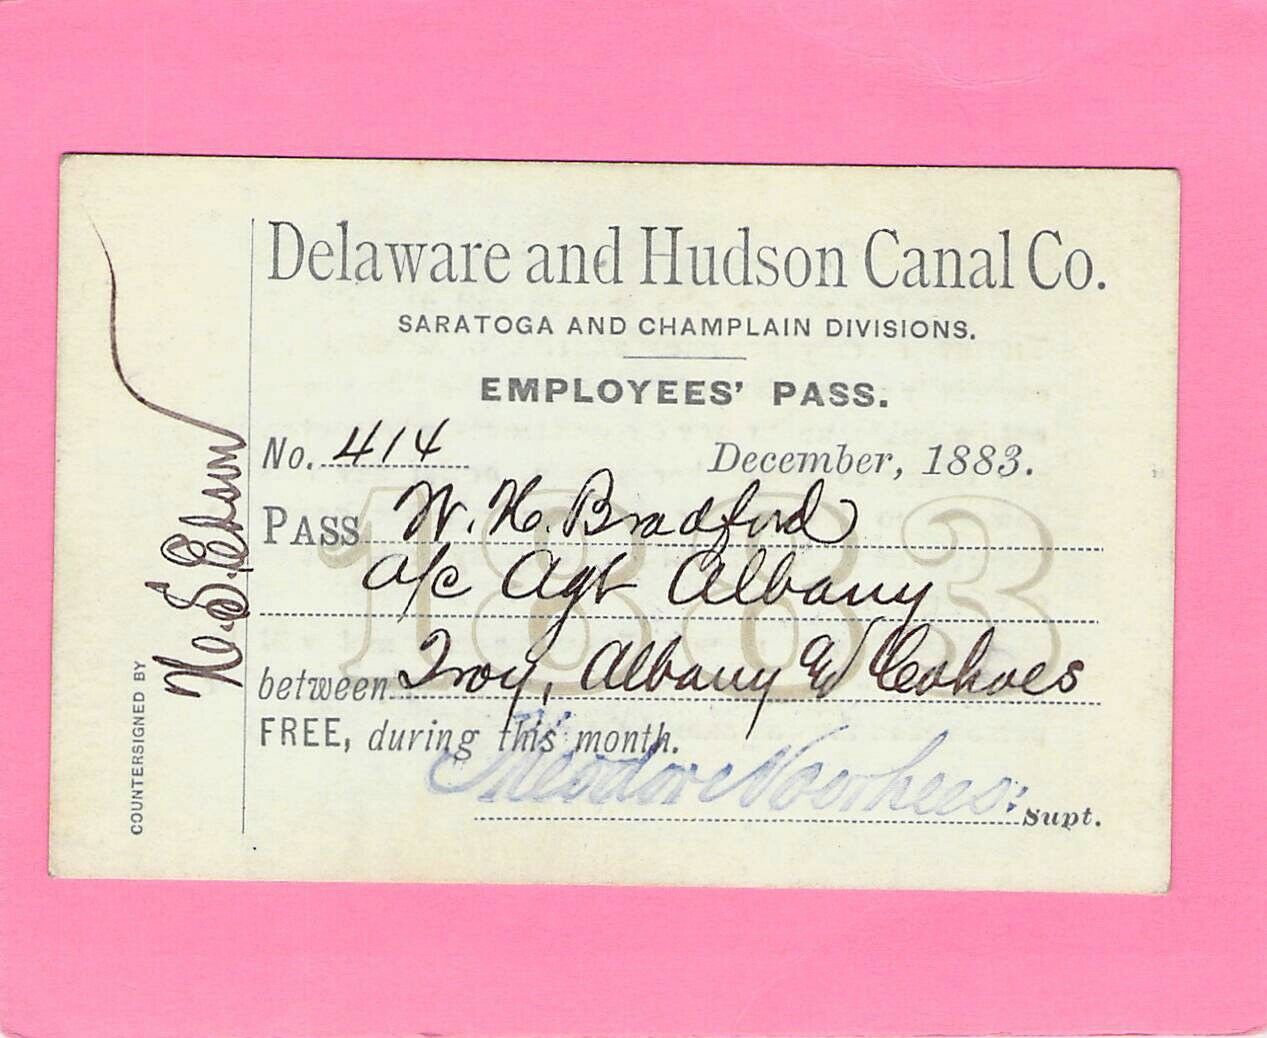 Delaware and Hudson Canal Co.
SARATOGA AND CHAMPLAIN DIVISIONS.
EMPLOYEES' PASS.
No. 414 December, 1883.
1883
PASS W. H. Bradford
a/c Agt Albany
between Troy, Albany & Cohoes
FREE, during this month.
Theodore Voorhees. Supt.
COUNTERSIGNED BY